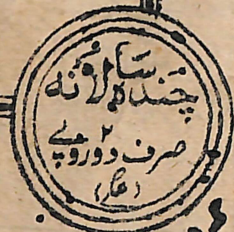 چندہ سالانہ
صرف دو روپے